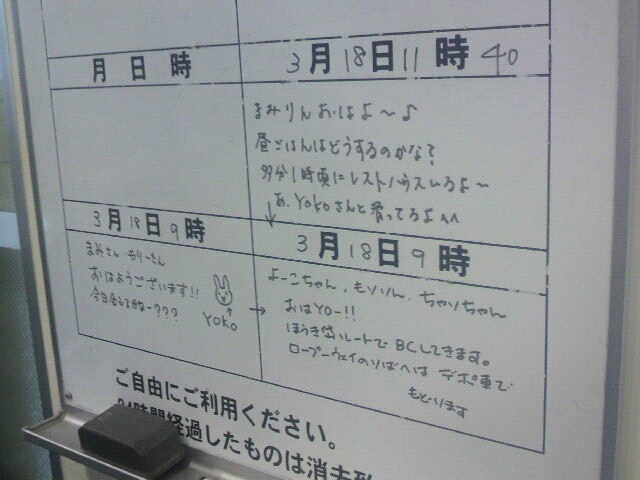 月 日 時
3月18日11時40
まみりんおはよ〜♪
昼ごはんはどうするのかな?
多分1時頃にレストハウスいるよ〜
あ、YOKOさんと登ってるよ^^
3月18日9時
まみさん もりーさん
おはようございます!!
今日会えるかなー???
YOKO
3月18日9時
よーこちゃん、もりりん、ちゃりちゃん
おはYOー!!
ほうき岱ルートでBCしてきます。
ロープーウェイのりばへは デポ車で
もどります
ご自由にご利用ください。
24時間経過したものは消去致